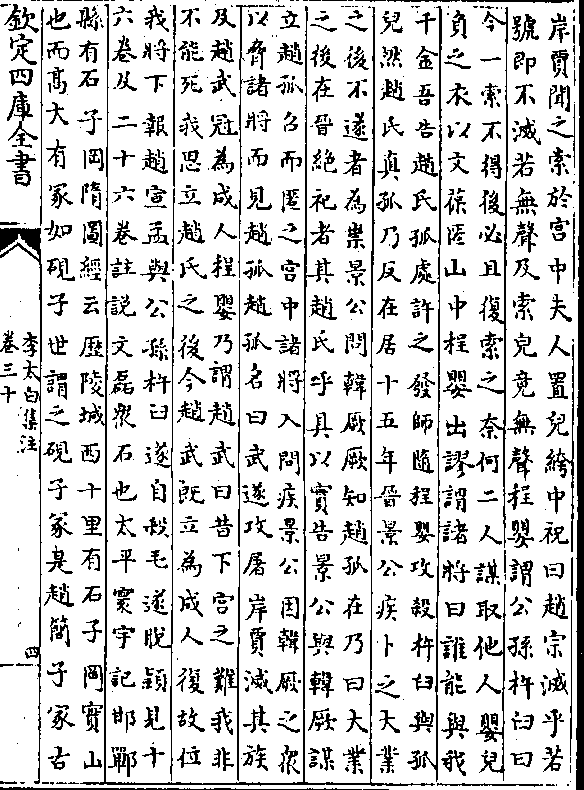 岸賈聞之索於宮中夫人置兒絝中祝曰趙宗滅乎若
號即不滅若無聲及索兒竟無聲程嬰謂公孫杵臼曰
今一索不得後必且復索之奈何二人謀取他人嬰兒
負之衣以文葆匿山中程嬰出謬謂諸將曰誰能與我
千金吾告趙氏孤處許之發師隨程嬰攻殺杵臼與孤
兒然趙氏真孤乃反在居十五年晉景公疾卜之大業
之後不遂者為祟景公問韓厥厥知趙孤在乃曰大業
之後在晉絶祀者其趙氏乎具以實告景公與韓厥謀
立趙孤召而匿之宮中諸將入問疾景公因韓厥之衆
以脅諸將而見趙孤趙孤名曰武遂攻屠岸賈滅其族
及趙武冠為成人程嬰乃謂趙武曰昔下宮之難我非
不能死我思立趙氏之後今趙武既立為成人復故位
我將下報趙宣孟與公孫杵臼遂自殺毛遂脱穎見十
六卷及二十六卷註説文磊衆石也太平寰宇記邯鄲
縣有石子岡隋圖經云歴陵城西十里有石子岡實山
也而髙大有冢如硯子世謂之硯子冢是趙簡子冢古
欽定四庫全書
李太白集注
卷三十
四